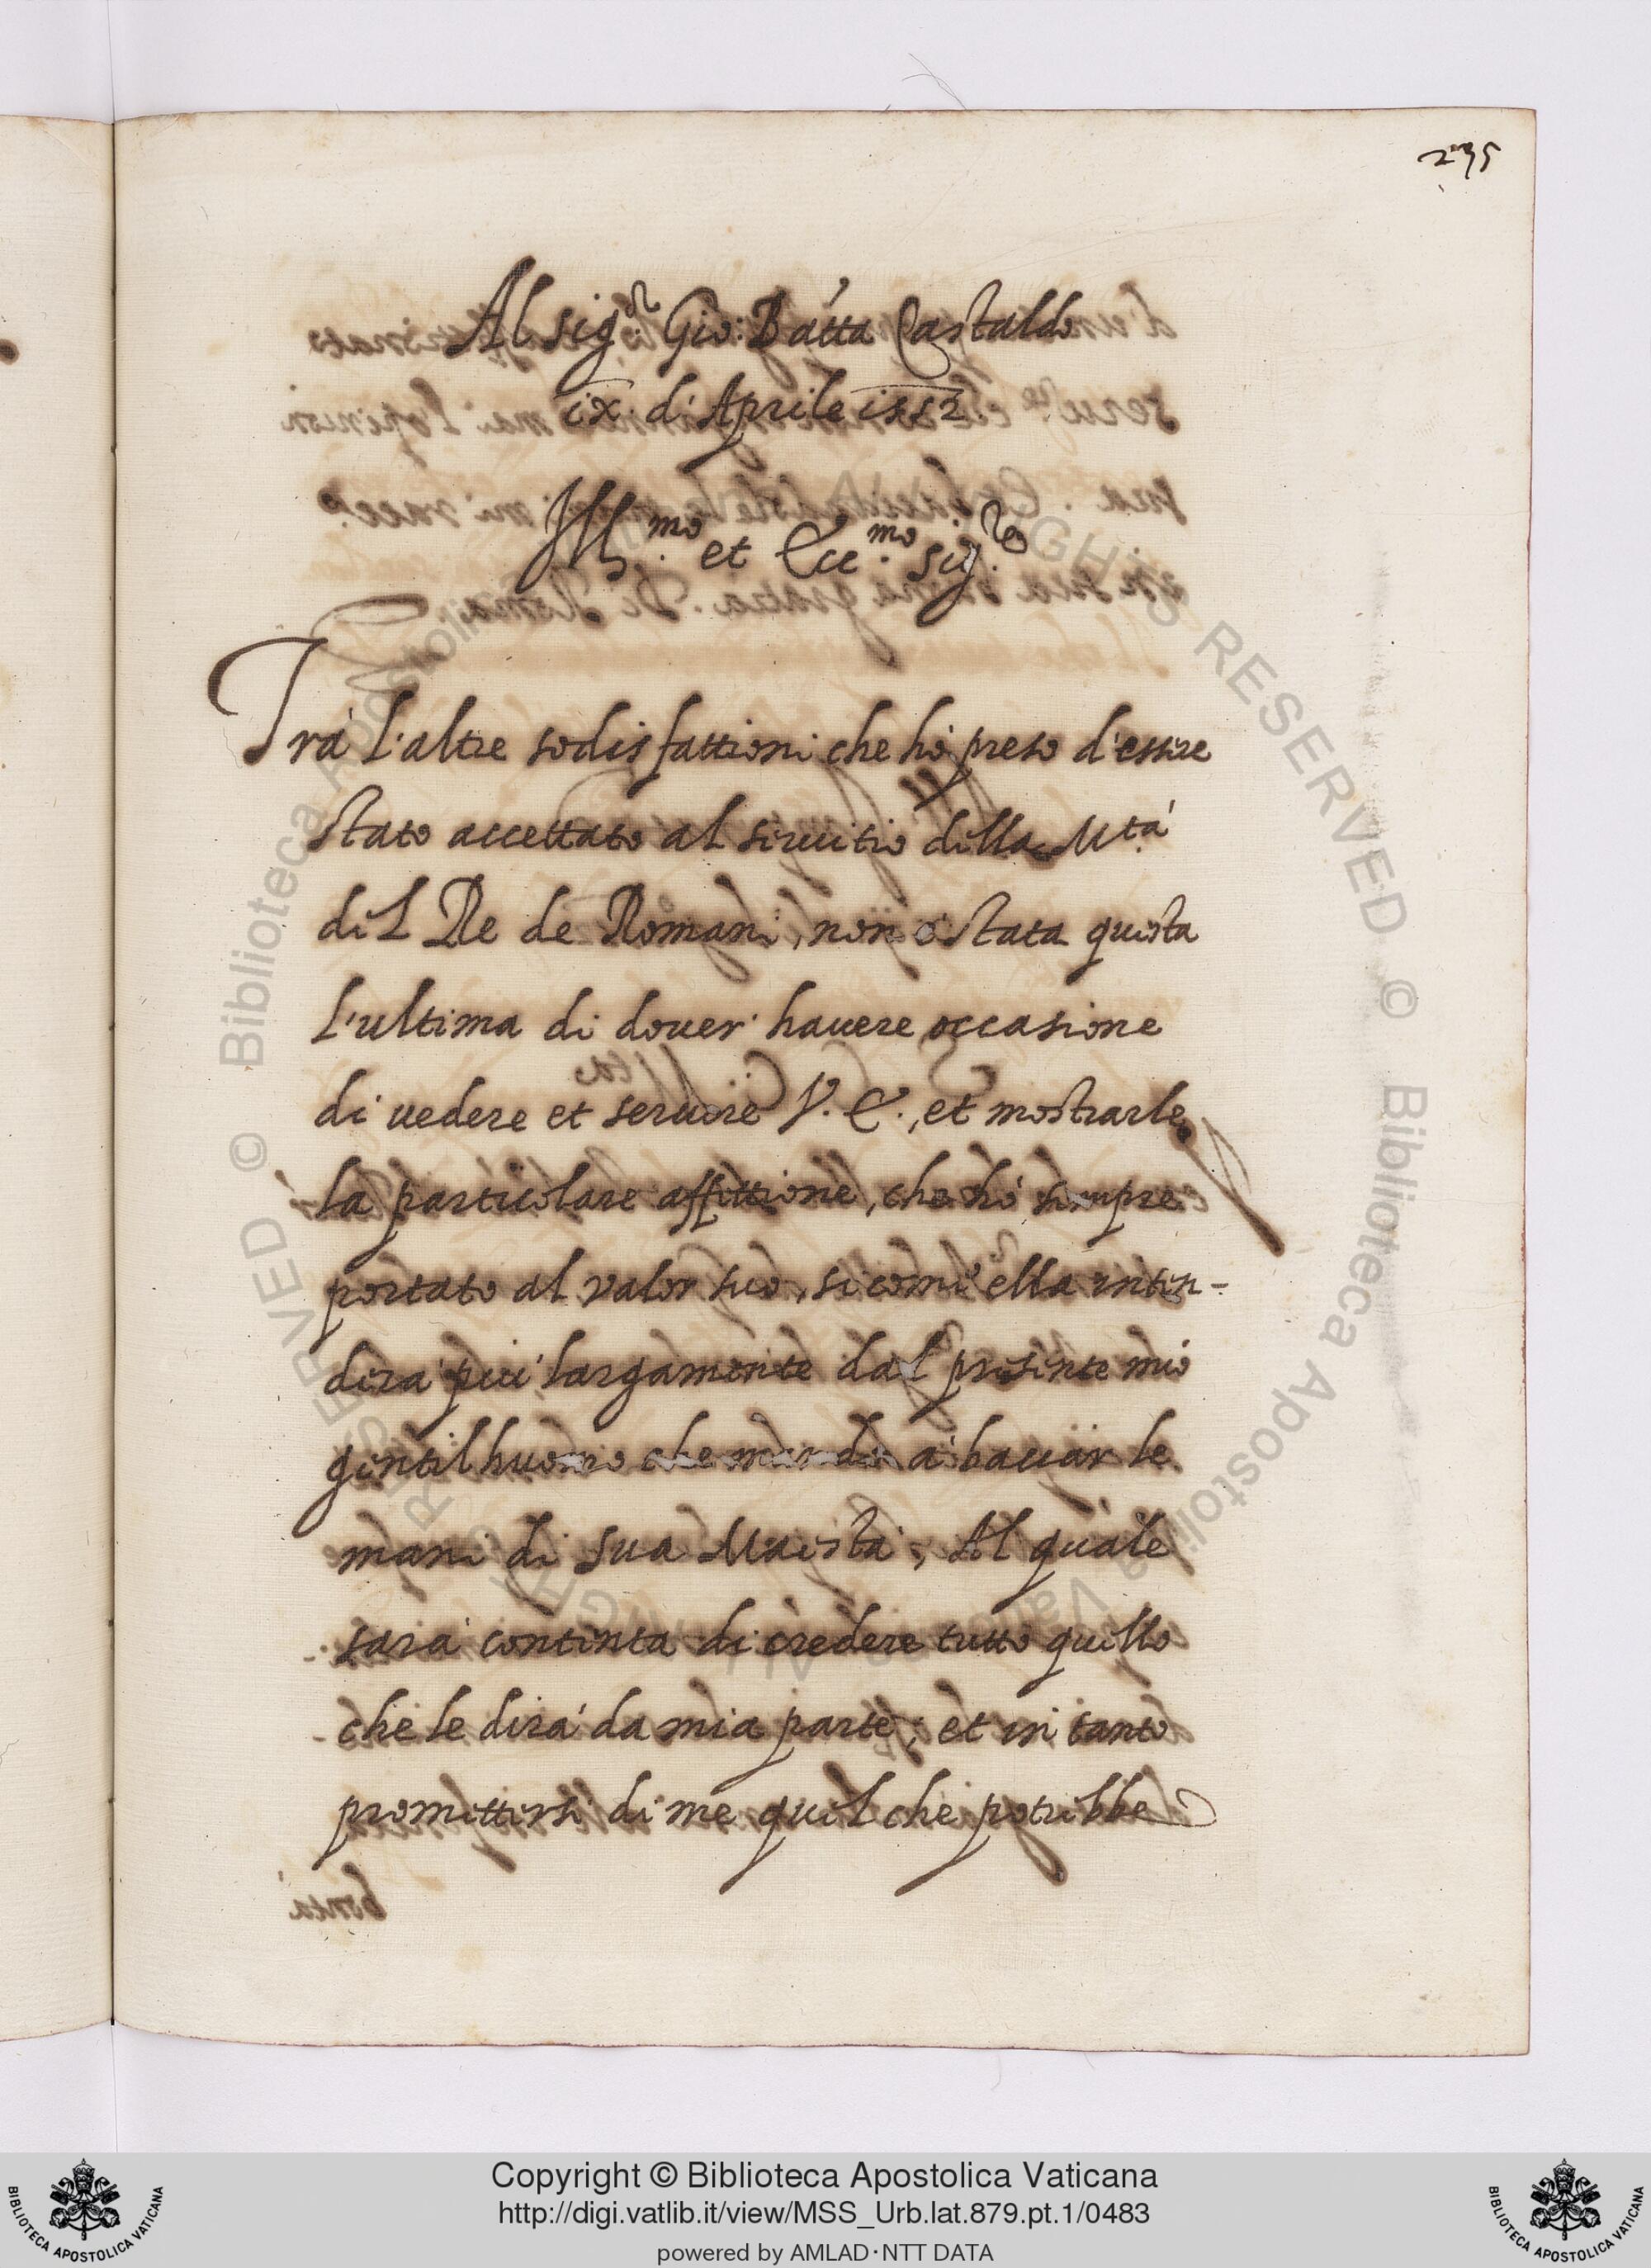 235
Al sig.r Gio: Batta Castaldo
ix d'Aprile 1552
Ill.mo et Ecc.mo sig.re
Trà l'altre sodisfattioni che hò preso d'essere
stato accettato al seruitio della M.tà
del Re de Romani, non è stata questa
l'ultima di douer' hauere occasione
di uedere et seruire V. E., et mostrarle
la particolare affettione, che hò sempre
portato al valor suo, si com'ella inten-
derà più largamente dal presente mio
gentilhuomo che mando à bacciar le
mani di sua Maestà, Al quale
sarà contenta di credere tutto quello
che le dirà da mia parte; et in tanto
promettersi di me quel che potrebbe
Copyright © Biblioteca Apostolica Vaticana
http://digi.vatlib.it/view/MSS_Urb.lat.879.pt.1/0483
powered by AMLAD·NTT DATA
BIBLIOTECA APOSTOLICA VATICANA
BIBLIOTECA APOSTOLICA VATICANA